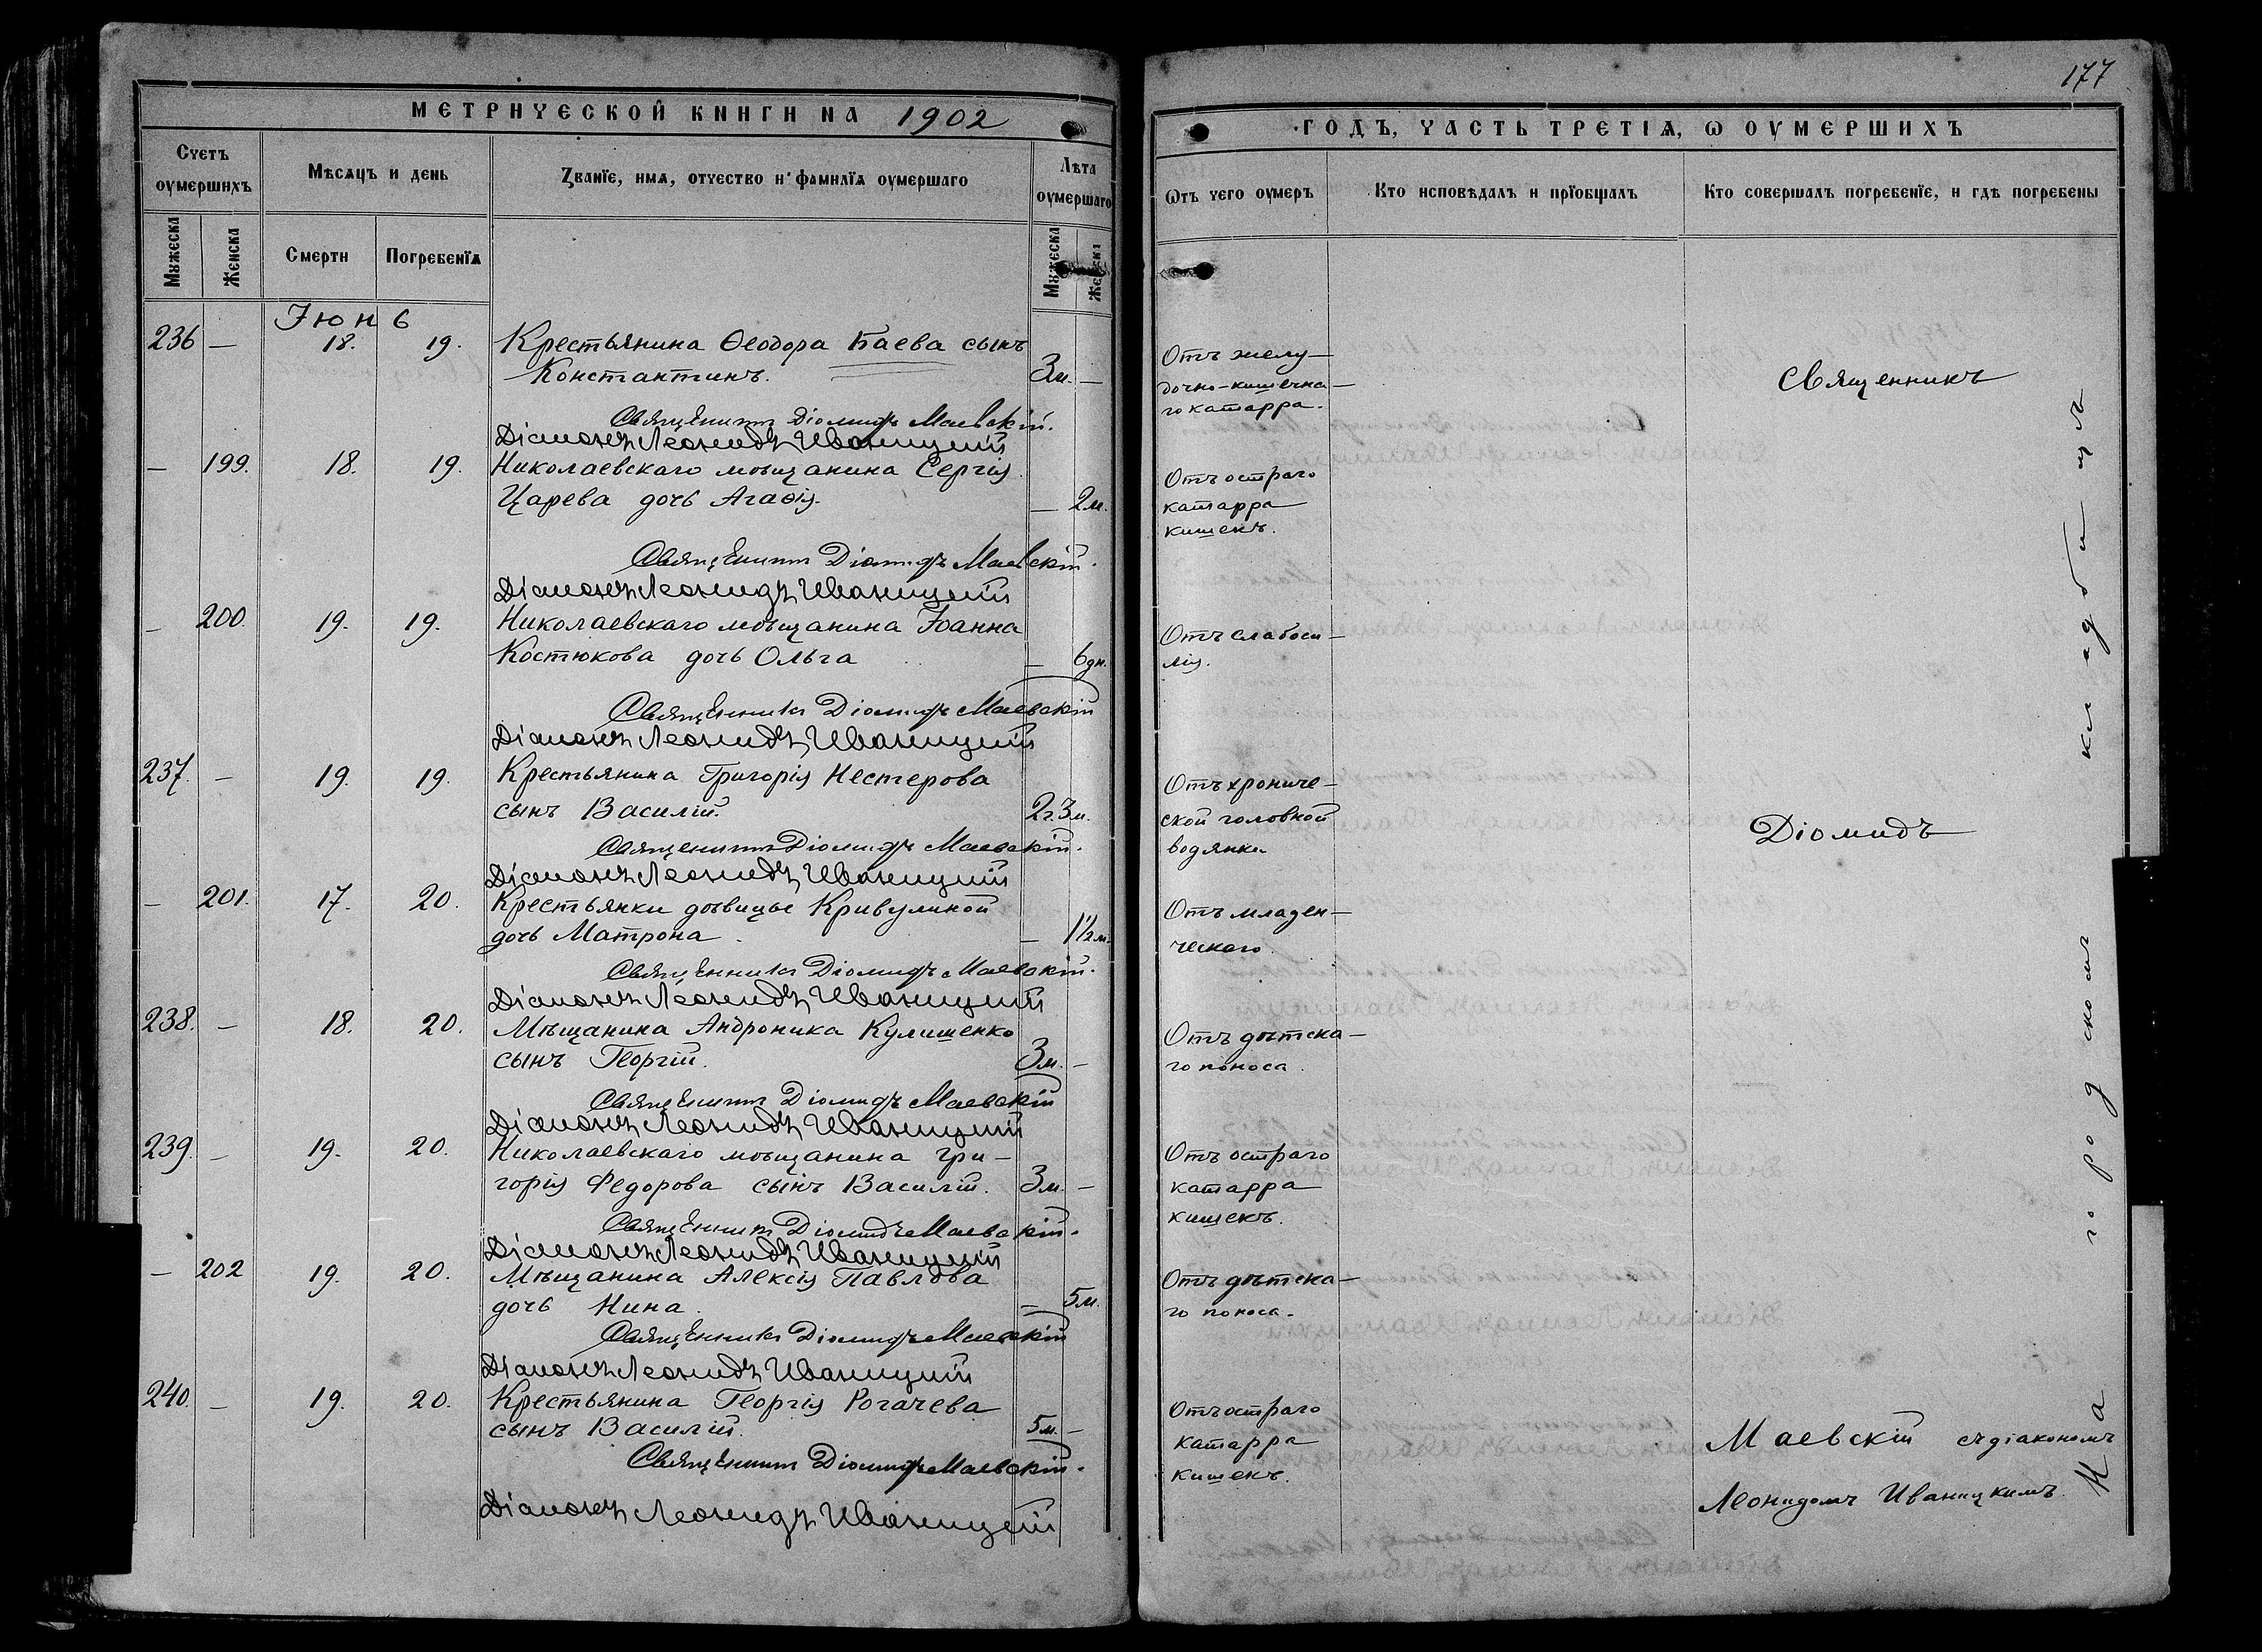 МЕТРИЧЕСКОЙ КНИГИ НА 1902
Счетъ оумершихъ
Мѣсяцъ и день
Званїе, имя, отчество и фамилїя оумершаго
Лѣта оумершаго
Мужеска
Женска
Смерти
Погребенїя
Мужеска
Женска
Іюнь
236 — 18. 19. Крестьянина Ѳеодора Баева сынъ
Константинъ. 3м. —
Священникъ Діомидъ Маевскій.
Діаконъ Леонидъ Иваницкій
— 199. 18. 19. Николаевскаго мѣщанина Сергія
Царева дочь Агаѳія. — 2м.
Священникъ Діомидъ Маевскій.
Діаконъ Леонидъ Иваницкій
— 200 19. 19. Николаевскаго мѣщанина Іоанна
Костюкова дочь Ольга — 6дн.
Священникъ Діомидъ Маевскій
Діаконъ Леонидъ Иваницкій
237. — 19. 19. Крестьянина Григорія Нестерова
сынъ Василій. 2г.3м.
Священникъ Діомидъ Маевскій.
Діаконъ Леонидъ Иваницкій
— 201. 17. 20. Крестьянки дѣвицы Кривулиной
дочь Матрона. — 1½м.
Священникъ Діомидъ Маевскій.
Діаконъ Леонидъ Иваницкій
238. — 18. 20. Мѣщанина Андроника Кулишенко
сынъ Георгій. 3м. —
Священникъ Діомидъ Маевскій
Діаконъ Леонидъ Иваницкій
239. — 19. 20. Николаевскаго мѣщанина Гри-
горія Федорова сынъ Василій. 3м. —
Священникъ Діомидъ Маевскій.
Діаконъ Леонидъ Иваницкій
— 202 19. 20. Мѣщанина Алексія Павлова
дочь Нина. — 5м.
Священникъ Діомидъ Маевскій
Діаконъ Леонидъ Иваницкій
240. — 19. 20. Крестьянина Георгія Рогачева
сынъ Василій. 5м. —
Священникъ Діомидъ Маевскій.
Діаконъ Леонидъ Иваницкій
177
ГОДЪ, ЧАСТЬ ТРЕТІЯ, Ѡ ОУМЕРШИХЪ
Ѡтъ чего оумеръ
Кто исповѣдалъ и прїобщалъ
Кто совершалъ погребенїе, и гдѣ погребены
Отъ желу-
дочно-кишечна-
го катарра.
Отъ остраго
катарра
кишекъ.
Отъ слабоси-
лія.
Отъ хрониче-
ской головной
водянки
Отъ младен-
ческаго.
Отъ дѣтска-
го поноса.
Отъ остраго
катарра
кишекъ.
Отъ дѣтска-
го поноса.
Отъ остраго
катарра
кишекъ.
Священникъ
Діомидъ
Маевскій съ діакономъ
Леонидомъ Иваницкимъ.
На городскомъ кладбищѣ